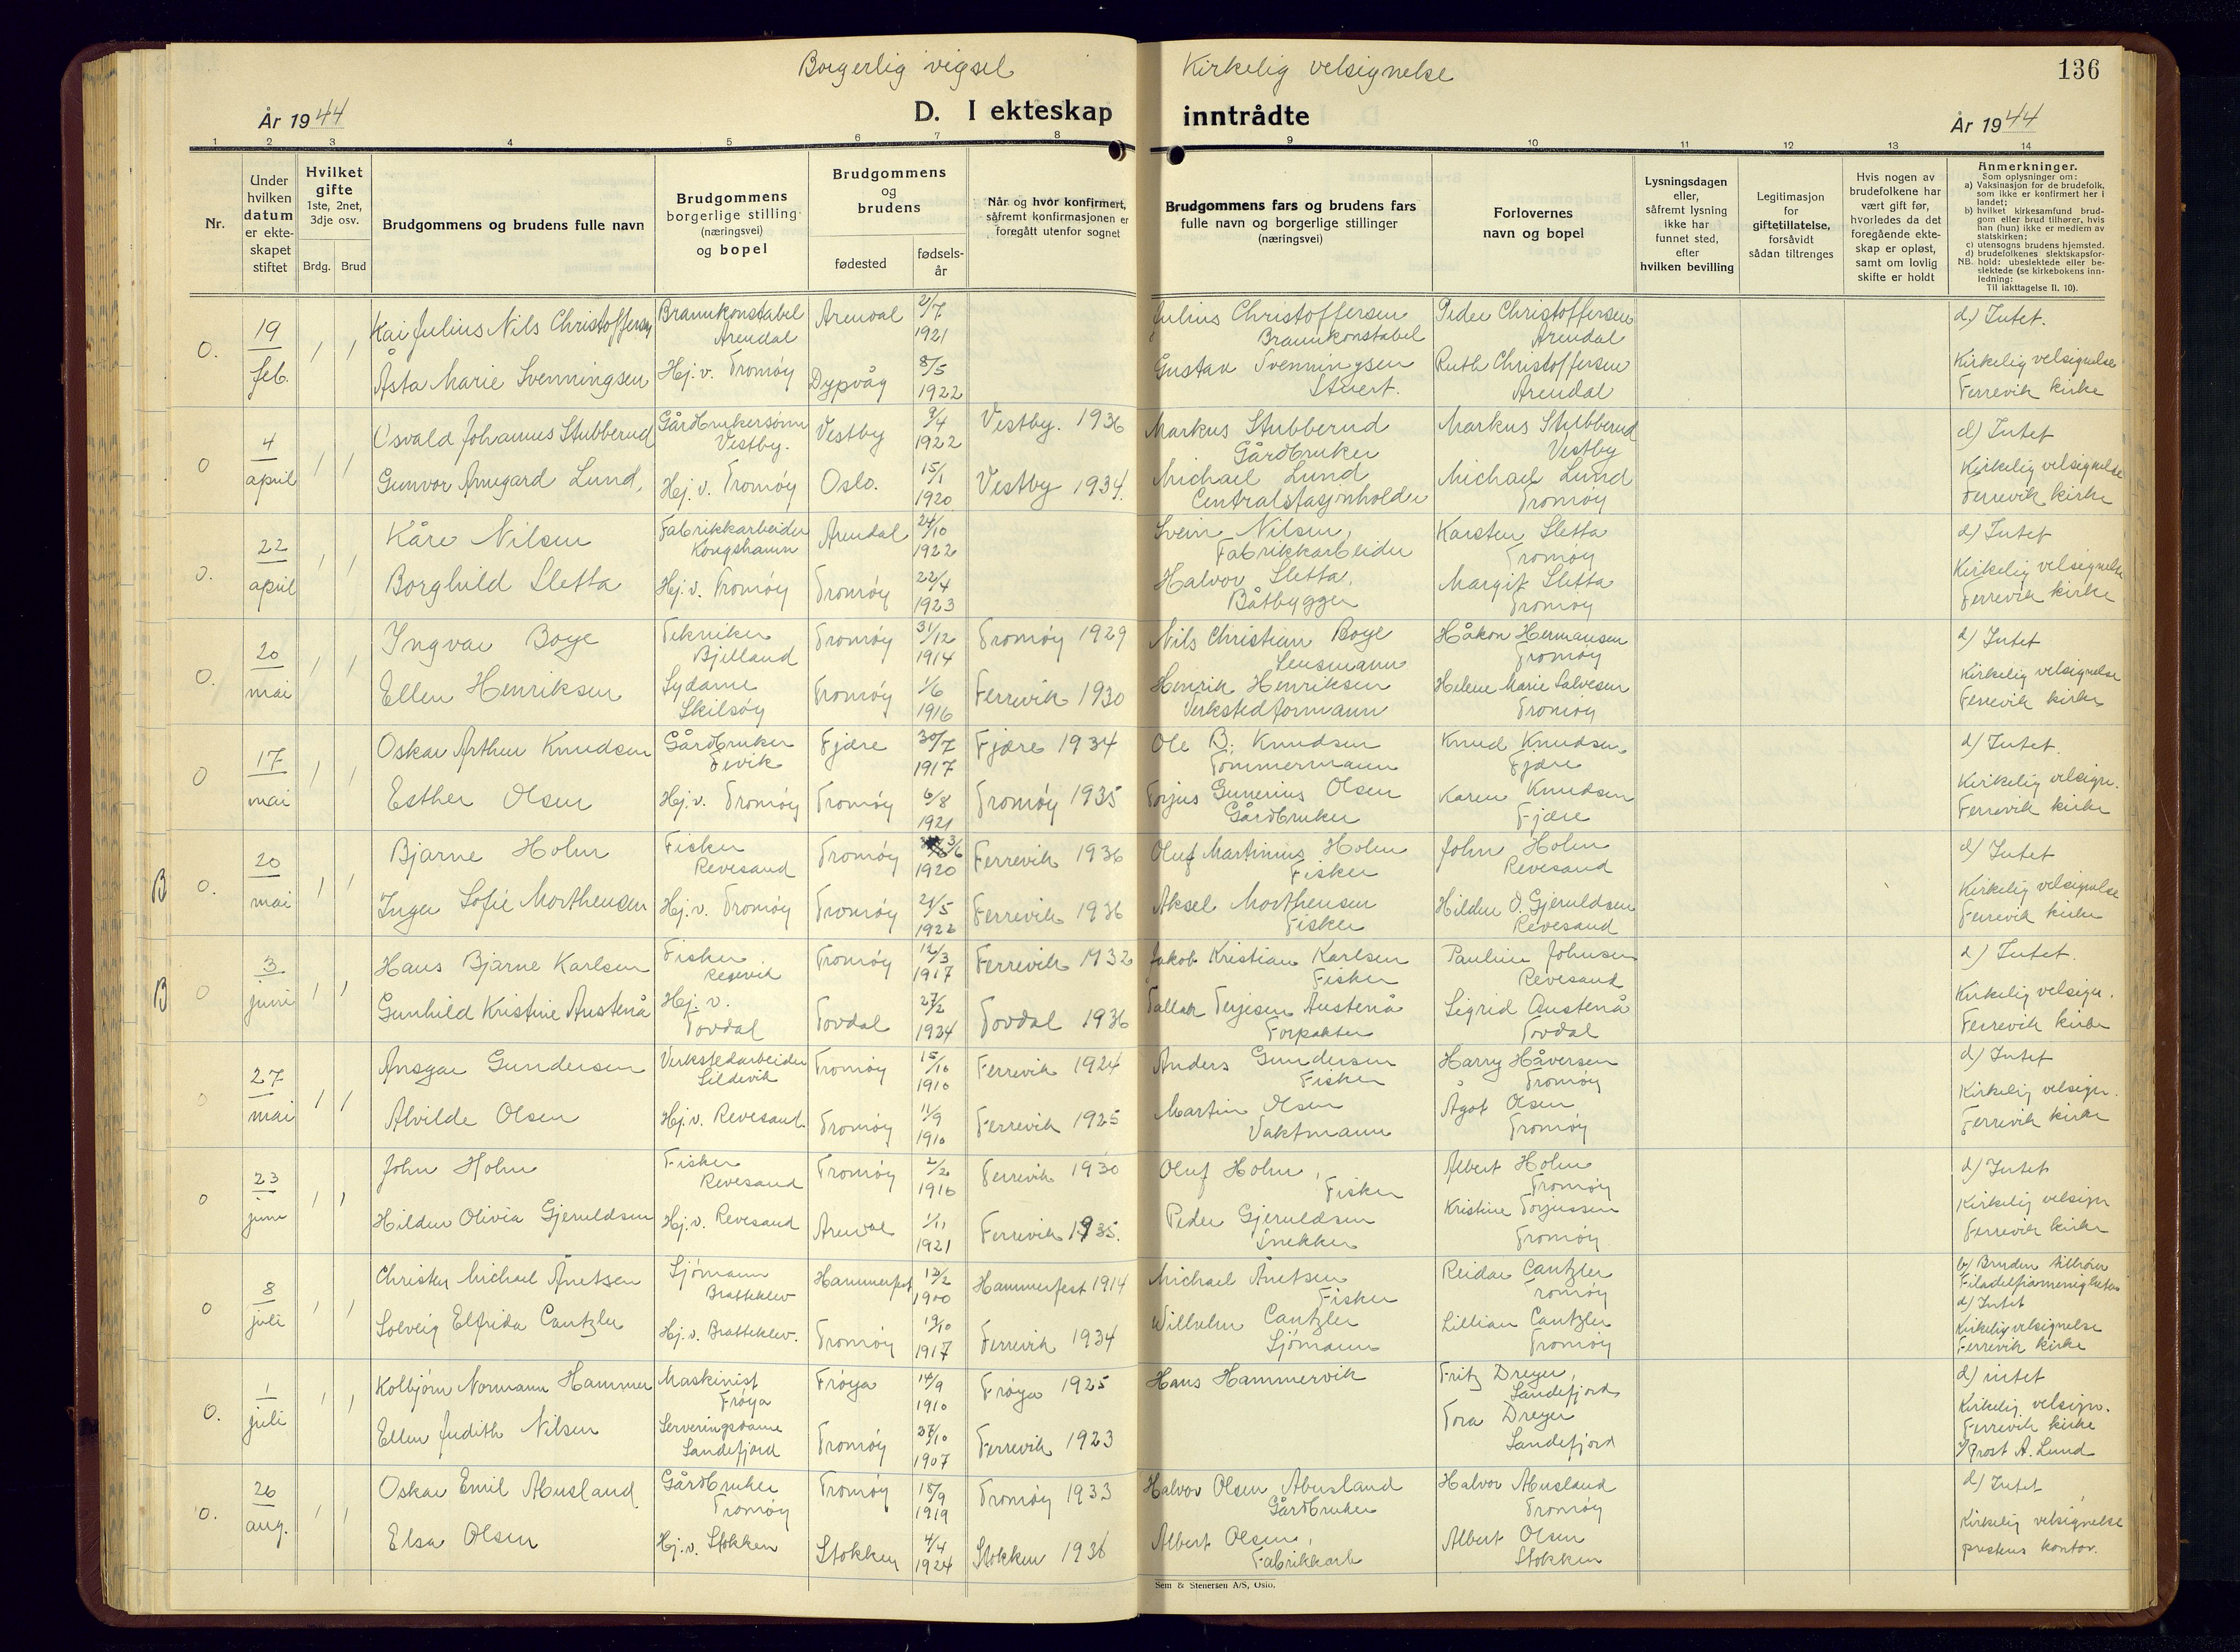 Borgerlig vigsel
Kirkelig velsignelse
136
År 1944
D. I ekteskap
inntrådte
År 1944
1 2 3 4 5 6 7 8 9 10 11 12 13 14
Nr.
Under
hvilken
datum
er ekte-
skapet
stiftet
Hvilket
gifte
1ste, 2net,
3dje osv.
Brdg. Brud
Brudgommens og brudens fulle navn
Brudgommens
borgerlige stilling
(næringsvei)
og bopel
Brudgommens
og
brudens
fødested
fødsels-
år
Når og hvor konfirmert,
såfremt konfirmasjonen er
foregått utenfor sognet
Brudgommens fars og brudens fars
fulle navn og borgerlige stillinger
(næringsvei)
Forlovernes
navn og bopel
Lysningsdagen
eller,
såfremt lysning
ikke har
funnet sted,
efter
hvilken bevilling
Legitimasjon
for
giftetillatelse,
forsåvidt
sådan tiltrenges
Hvis nogen av
brudefolkene har
vært gift før,
hvorledes da det
foregående ekte-
skap er opløst,
samt om lovlig
skifte er holdt
Anmerkninger.
Som oplysninger om:
a) Vaksinasjon for de brudefolk,
som ikke er konfirmert her i
landet;
b) hvilket kirkesamfund brud-
gom eller brud tilhører, hvis
han (hun) ikke er medlem av
statskirken;
c) utensogns brudens hjemsted.
d) brudefolkenes slektskapsfor-
hold: ubeslektede eller be-
slektede (se kirkebokens inn-
ledning:
NB. Til iakttagelse II. 10).
0. 19 feb. 1 1
Kai Julius Nils Christoffersen Brannkonstabel Arendal Arendal 2/7 1921 Julius Christoffersen Brannkonstabel Peder Christoffersen Arendal d) Intet.
Åsta Marie Svenningsen Hj.v. Tromøy Dypvåg 8/5 1922 Gustav Svenningsen Stuert. Ruth Christoffersen Arendal Kirkelig velsignelse Færrevik kirke
0 4 april 1 1
Osvald Johannes Stubberud Gårdbrukersønn Vestby. Vestby 9/4 1922 Vestby. 1936 Markus Stubberud Gårdbruker Markus Stubberud Vestby d) Intet
Gunvor Armgard Lund, Hj.v. Tromøy Oslo. 15/1 1920 Vestby 1934. Michael Lund Centralstasjonholder Michael Lund Tromøy Kirkelig velsignelse Færrevik kirke
0. 22 april 1 1
Kåre Nilsen Fabrikkarbeider Kongshamn Arendal 24/10 1922 Svein Nilsen, Fabrikkarbeider Karsten Sletta Tromøy d) Intet
Borghild Sletta Hj.v. Tromøy Tromøy 22/4 1923 Halvor Sletta, Båtbygger Margit Sletta Tromøy Kirkelig velsignelse Færrevik kirke
0. 20 mai 1 1
Ingvar Boye Tekniker Bjelland Tromøy 31/12 1914 Tromøy 1929 Nils Christian Boye Lensmann Håkon Hermansen Tromøy d) Intet
Ellen Henriksen Sydame Skilsøy Tromøy 1/6 1916 Færrevik 1930 Henrik Henriksen Verkstedformann Helene Marie Salvesen Tromøy Kirkelig velsignelse Færrevik kirke
0 17 mai 1 1
Oskar Arthur Knudsen Gårdbruker Fevik Fjære 30/7 1917 Fjære 1934 Ole B. Knudsen Tømmermann Knud Knudsen Fjære d) Intet.
Esther Olsen Hj.v. Tromøy Tromøy 6/8 1921 Tromøy 1935 Torjus Gunerius Olsen Gårdbruker Karen Knudsen Fjære Kirkelig velsign. Færrevik kirke
B 0. 20 mai 1 1
Bjarne Holm Fisker Revesand Tromøy 3/6 1920 Færrevik 1936 Oluf Martinius Holm Fisker John Holm Revesand d) Intet
Inger Sofie Morthensen Hj.v. Tromøy Tromøy 21/5 1922 Færrevik 1936 Aksel Morthensen Fisker Hildur O. Gjeruldsen Revesand Kirkelig velsignelse Færrevik kirke
B 0 3 juni 1 1
Hans Bjarne Karlsen Fisker Tromøy 12/3 1917 Færrevik 1932 Jakob Kristian Karlsen Fisker Pauline Johnsen Revesand d) Intet.
Gunhild Kristine Austenå Hj.v. Tovdal Tovdal 27/2 1924 Tovdal 1936 Tallak Terjesen Austenå Forpakter Sigrid Austenå Tovdal Kirkelig velsign. Færrevik kirke
0 27 mai 1 1
Ansgar Gundersen Verkstedarbeider Sildevik Tromøy 15/10 1910 Færrevik 1924 Anders Gundersen Fisker Harry Håversen Tromøy d) Intet
Alvilde Olsen Hj.v. Revesand Tromøy 11/9 1910 Færrevik 1925 Martin Olsen Vaktmann Ågot Olsen Tromøy Kirkelig velsign. Færrevik kirke
0 23 juni 1 1
John Holm Fisker Revesand Tromøy 2/2 1916 Færrevik 1930 Oluf Holm, Fisker Albert Holm Tromøy d) Intet
Hildur Olivia Gjeruldsen Hj.v. Revesand Arendal 1/11 1921 Færrevik 1935. Peder Gjeruldsen Snekker Kristine Torjussen Tromøy Kirkelig velsign Færrevik kirke
0 8 juli 1 1
Christen Michael Anetsen Sjømann Bratteklev Hammerfest 13/2 1900 Hammerfest 1914 Michael Anetsen Fisker Reidar Cantzler Tromøy b) Bruden tilhører Filadelfiamenigheten d) Intet
Solveig Elfrida Cantzler Hj.v. Bratteklev. Tromøy 19/10 1917 Færrevik 1934 Wilhelm Cantzler Sjømann Lillian Cantzler Tromøy Kirkelig velsignelse Færrevik kirke
0. 1 juli 1 1
Kolbjørn Normann Hammer Maskinist Frøya Frøya 14/9 1910 Frøya 1925 Hans Hammervik Fritz Dreyer, Sandefjord d) intet
Ellen Judith Nilsen Serveringsdame Sandefjord Tromøy 27/10 1907 Færrevik 1923 Tora Dreyer Sandefjord Kirkelig velsign. Færrevik kirke v/Prost A. Lund
0. 26 aug. 1 1
Oskar Emil Abusland Gårdbruker Tromøy Tromøy 15/9 1919 Tromøy 1933 Halvor Olsen Abusland Gårdbruker Halvor Abusland Tromøy d) Intet
Elsa Olsen Hj.v. Stokken Stokken 4/4 1924 Stokken 1938 Albert Olsen, Fabrikkarb Albert Olsen Stokken Kirkelig velsignelse prestens kontor.
Sem & Stenersen A/S, Oslo.